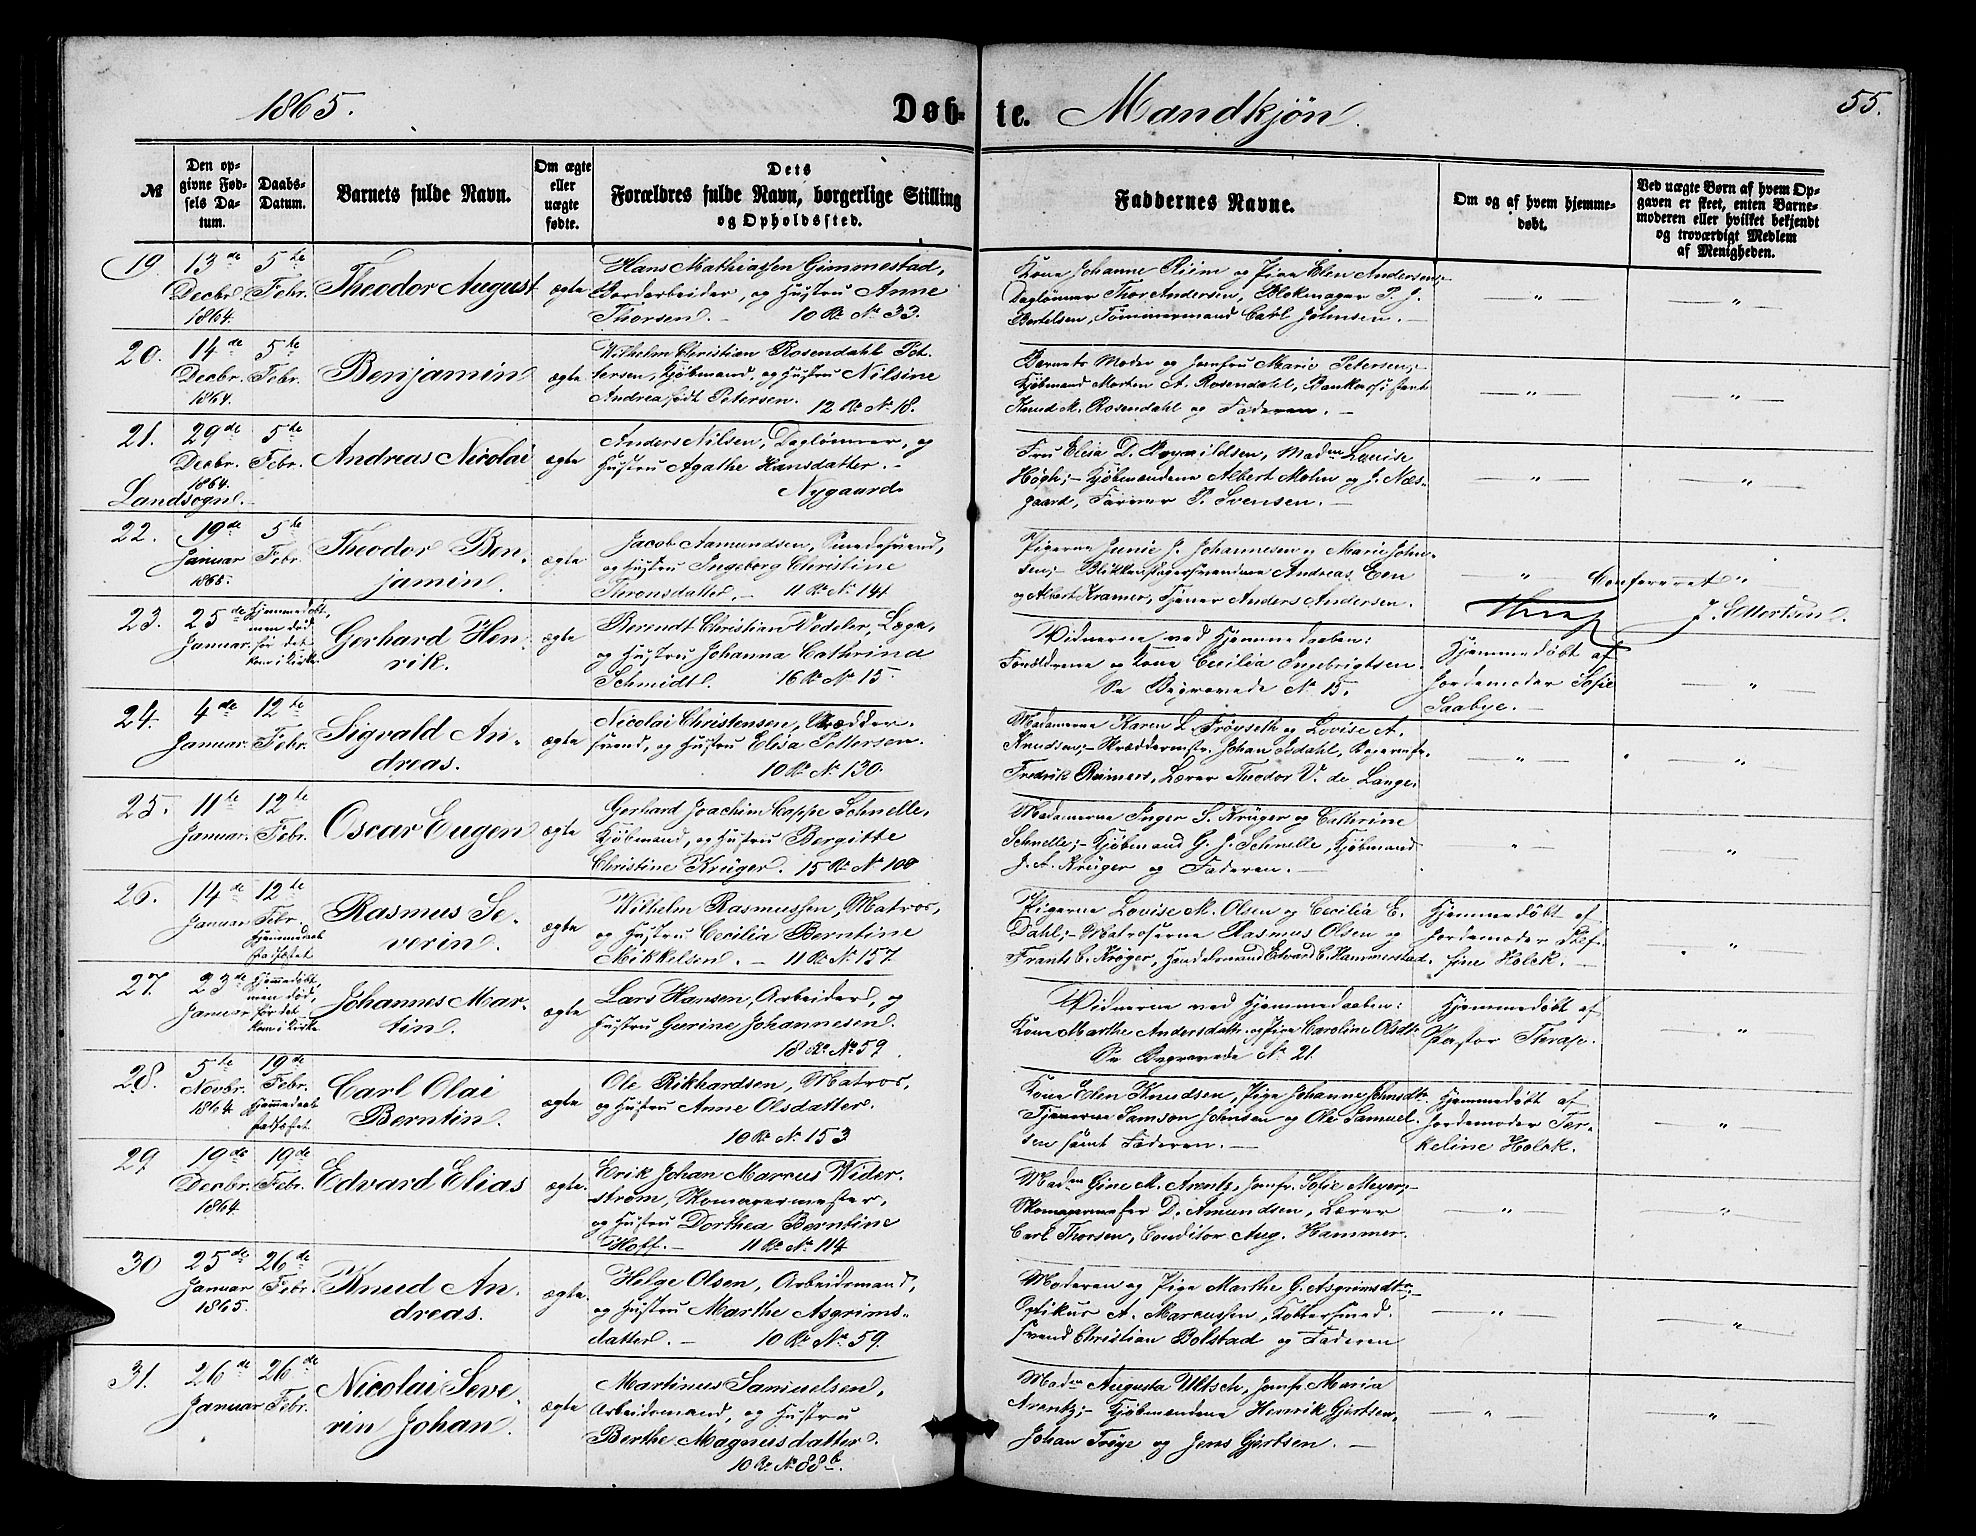 1865.
Døb-
te. Mandkjøn.
55.
№
Den op-
givne Fød-
sels Da-
tum.
Daabs-
Datum.
Barnets fulde Navn.
Om ægte
eller
uægte
fødte.
Dets
Forældres fulde Navn, borgerlige Stilling
og Opholdssted.
Faddernes Navne.
Om og af hvem hjemme-
døbt.
Ved uægte Børn af hvem Op-
gaven er skeet, enten Barne-
moderen eller hvilket bekjendt
og troværdigt Medlem
af Menigheden.
19. 13de Decbr. 1864. 5te Febr. Theodor August ægte
Hans Mathiassen Gimmestad,
Bordarbeider, og Hustru Anne
Thorsen. - 10 R. No 33.
Kone Johanne Riim og Pige Elen Andersen,-
Daglønner Thor Andersen, Blokmager P. J.
Bertelsen, Tømmermand Carl Johnsen. -
20. 14de Decbr. 1864. 5te Febr. Benjamin ægte
Wilhelm Christian Rosendahl Pet-
tersen, Kjøbmand, og Hustru Nilsine
Andrea født Petersen. 12 R. No 18.
Barnets Moder og Jomfru Marie Petersen,-
Kjøbmand Morten A. Rosendahl, Bankassistent
Knud M. Rosendahl og Faderen. -
21. 29de Decbr. 1864. 5te Febr. Andreas Nicolai ægte
Landsogn. -
Anders Nilsen, Daglønner, og
Hustru Agathe Hansdatter. -
Nygaard
Fru Elisa D. Madn Lovise
Høgh;- Kjøbmændene Albert Mohn og J. Næs-
gaard, Farver P. Svensen. -
22. 19de Januar 1865. 5te Febr. Theodor Ben-
jamin. ægte
Jacob Aamundsen, Smedesvend,
og Hustru Ingeborg Christine
Thronsdatter, - 11 R. No 141
Pigerne Junie J. Johannesen og Marie John-
sen;- Blikkenslagersvendene Andreas Een
og Albert Kramer, Tjener Anders Andersen.
Confereret
Thrap J. Ellertsen.
23. 25de Januar. Hjemmedøbt,
men død
før det
kom i Kirke Gerhard Hen-
rik. ægte
Berendt Christian Vedeler, Læge,
og Hustru Johanna Cathrina
Schmidt. 16 R. No 15.
Vidnerne ved Hjemmedaaben:
Forældrene og Kone Cecilia Ingebrigtsen.
Se Begravede No 15.
Hjemmedøbt af
Jordemoder Sofie
Saabye. -
24. 4de Januar. 12te Febr. Sigvald An-
dreas. ægte
Nicolai Christensen, Skrædder-
svend, og Hustru Elisa Pettersen.
10 R. No 130.
Madamerne Karen L. Frøyseth og Lovise A.
Knudsen;- Skræddermstr. Johan Isdahl,
Fredrik Reimers, Lærer Theodor V. de Lange.
25. 11te Januar. 12te Febr. Oscar Eugen ægte
Gerhard Joachim Kappe Schnelle,
Kjøbmand, og Hustru Bergitte
Christine Krüger. 15 R. No 100
Madamerne Inger S. Krüger og Cathrine
Schnelle;- Kjøbmand G. J. Schnelle, Kjøbmand
J. A. Krüger og Faderen. -
26. 14de Januar 12te Febr. Hjemmedaab
stadfæstet Rasmus Se-
verin. ægte
Wilhelm Rasmussen, Matros,
og Hustru Cecilia Berntine
Mikkelsen. - 11 R. No 157
Pigerne Lovise M. Olsen og Cecilia E.
Dahl;- Matroserne Rasmus Olsen og
Frants C. Krøger, Handelsmand Edvard C. Hammerstad.
Hjemmedøbt af
Jordemoder Jo-
sine Holck. -
27. 23de Januar Hjemmedøbt,
men død,
før det
kom i Kirke Johannes Mar-
tin. ægte
Lars Hansen, Arbeider, og
Hustru Gurine Johannesen.
18 R. No 59.
Vidnerne ved Hjemmedaaben:
Kone Marthe Andersdatr. og Pige Caroline Olsdtr.
Se Begravede No 21.
Hjemmedøbt af
Pastor Thrap.
28. 5te Novbr. 1864 19de Febr. Hjemmedaab
stadfæstet. Carl Olai
Berntin. ægte
Ole Rikhardsen, Matros,
og Hustru Anne Olsdatter.
10 R. No 153
Kone Elen Knudsen, Pige Johanne Johnsdtr.
Tjenerne Samson Johnsen og Ole Samuel-
sen samt Faderen. -
Hjemmedøbt af
Jordemoder Ter-
keline Holck.
29 19de Decbr. 1864. 19de Febr. Edvard Elias ægte.
Erik Johan Marcus Wider-
strøm, Skomagermester,
og Hustru Dorthea Berntine
Hoff. - 11 R. No 114
Madn Gine M. Arentz, Jomfr. Sofie Meyer;-
Skomagermester D. Amundsen, Lærer
Carl Thorsen, Conditor Aug. Hammer.
30 25de Januar 1865. 26de Febr. Knud An-
dreas. ægte.
Helge Olsen, Arbeidsmand,
og Hustru Marthe Asgrims-
datter. - 10 R. No 59.
Moderen og Pige Marthe G. Asgrimsdtr;-
Optikus A. Marcussen, Kobbersmed-
svend Christian Bolstad og Faderen
31. 26de Januar 26de Febr. Nicolai Seve-
rin Johan. ægte
Martinus Samuelsen,
Arbeidsmand, og Hustru
Berthe Magnusdatter.
10 R. No 88b.
Madn Augusta Ultsch, Jomfr. Maria
Arentz;- Kjøbmændene Henrik Gjertsen,
Johan Frøye og Jens Gjertsen. -